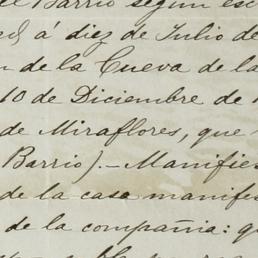 el Barrio según esc
ed, á diez de Julio de
n de la Cueva de la
10 de Diciembre de
de Miraflores, que
Barrio).—Manifies
de la casa manifes
de la compañia: q